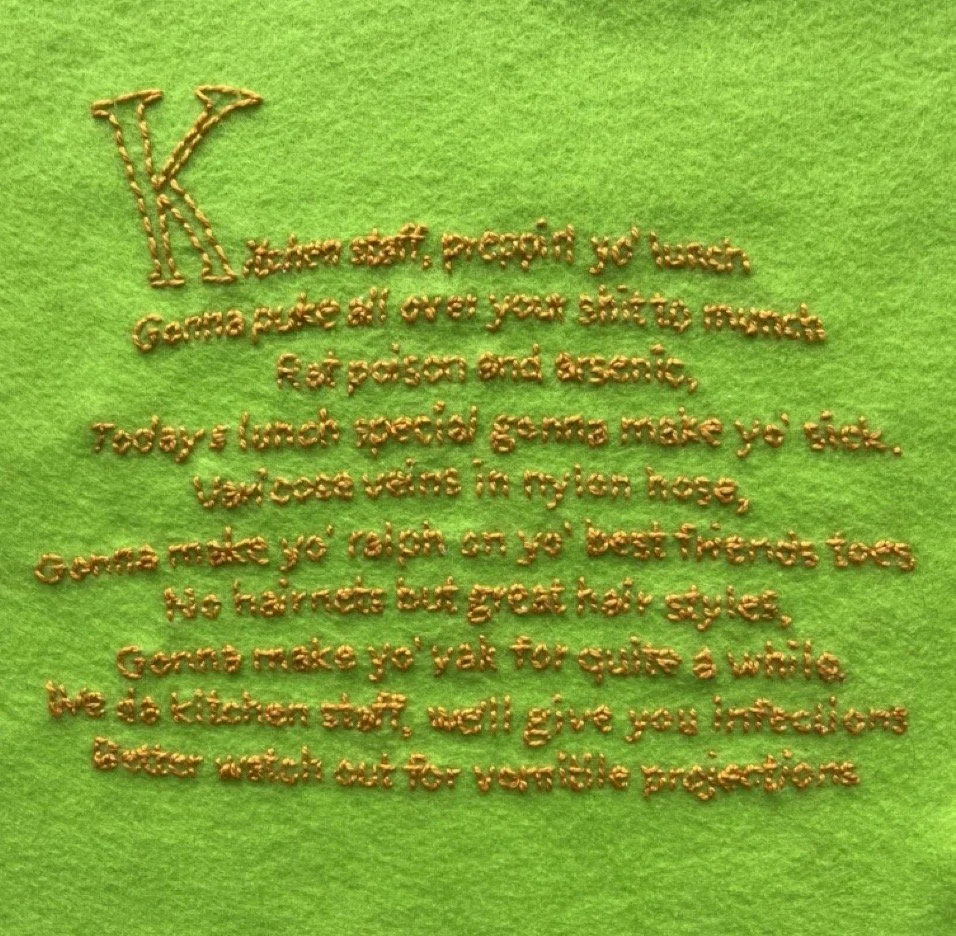 Kitchen staff, preppin' yo' lunch
Gonna puke all over your shit to munch
Rat poison and arsenic,
Today's lunch special gonna make yo' sick.
Varicose veins in nylon hose,
Gonna make yo' ralph on yo' best friends toes
No hairnets but great hair styles,
Gonna make yo' yak for quite a while.
We da kitchen staff, we'll give you infections
Better watch out for vomitile projections